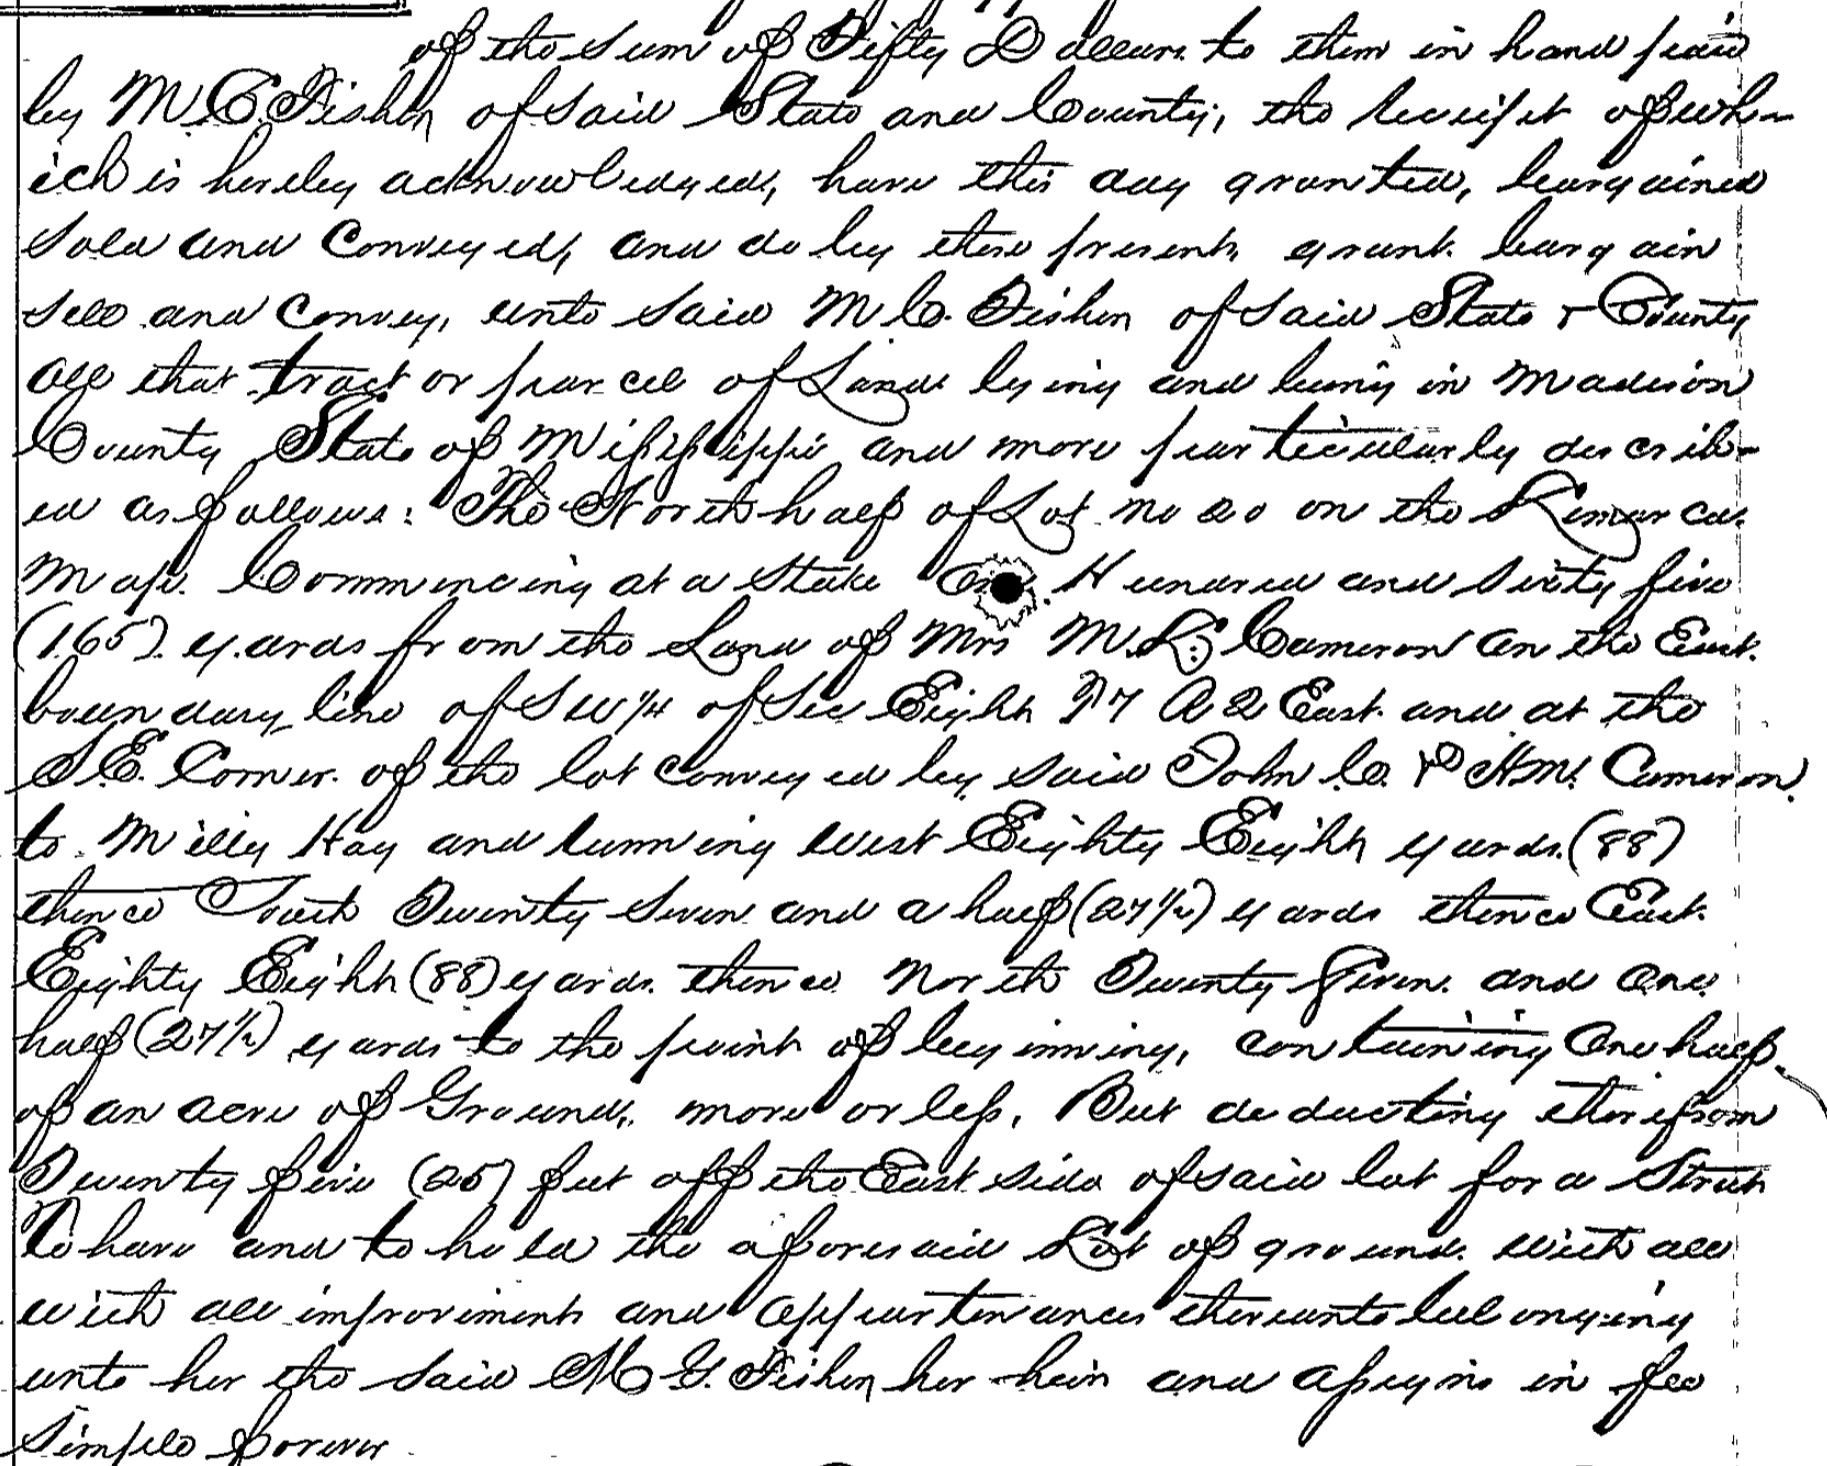 of the sum of Fifty Dollars to them in hand paid
by M. C. Fisher of said State and County, the receipt of wh-
ich is hereby acknowledged, have this day granted, bargained
sold and Conveyed, and do by these presents, grant. bargain
sell and convey, unto said M C. Fisher of said State & County
all that tract or parcel of Land lying and being in Madison
County State of Mississippi and more particularly describ-
ed as follows: The North half of Lot no 20 on the
Map. Commencing at a Stake One Hundred and Sixty five
(165) yards from the Land of Mrs M. L. Cameron on the East.
boundary line of SW 1/4 of Sec Eight T7 R2 East. and at the
S.E. Corner. of the lot conveyed by said John C. & Cameron.
to Milly Hay and running West Eighty Eight yards. (88)
thence South Twenty Seven and a half (27 1/2) yards thence East.
Eighty Eight (88) yards. thence North Twenty Seven. and One
half (27 1/2) yards to the point of beginning, containing One half
of an acre of Ground, more or less, But deducting therefrom
Twenty five (25) feet off the East side of said lot for a Street
To have and to hold the aforesaid Lot of ground. with all
with all improvements and appurtenances thereunto belonging
unto her the said M G. Fisher her heirs and assigns in fee
Simple forever